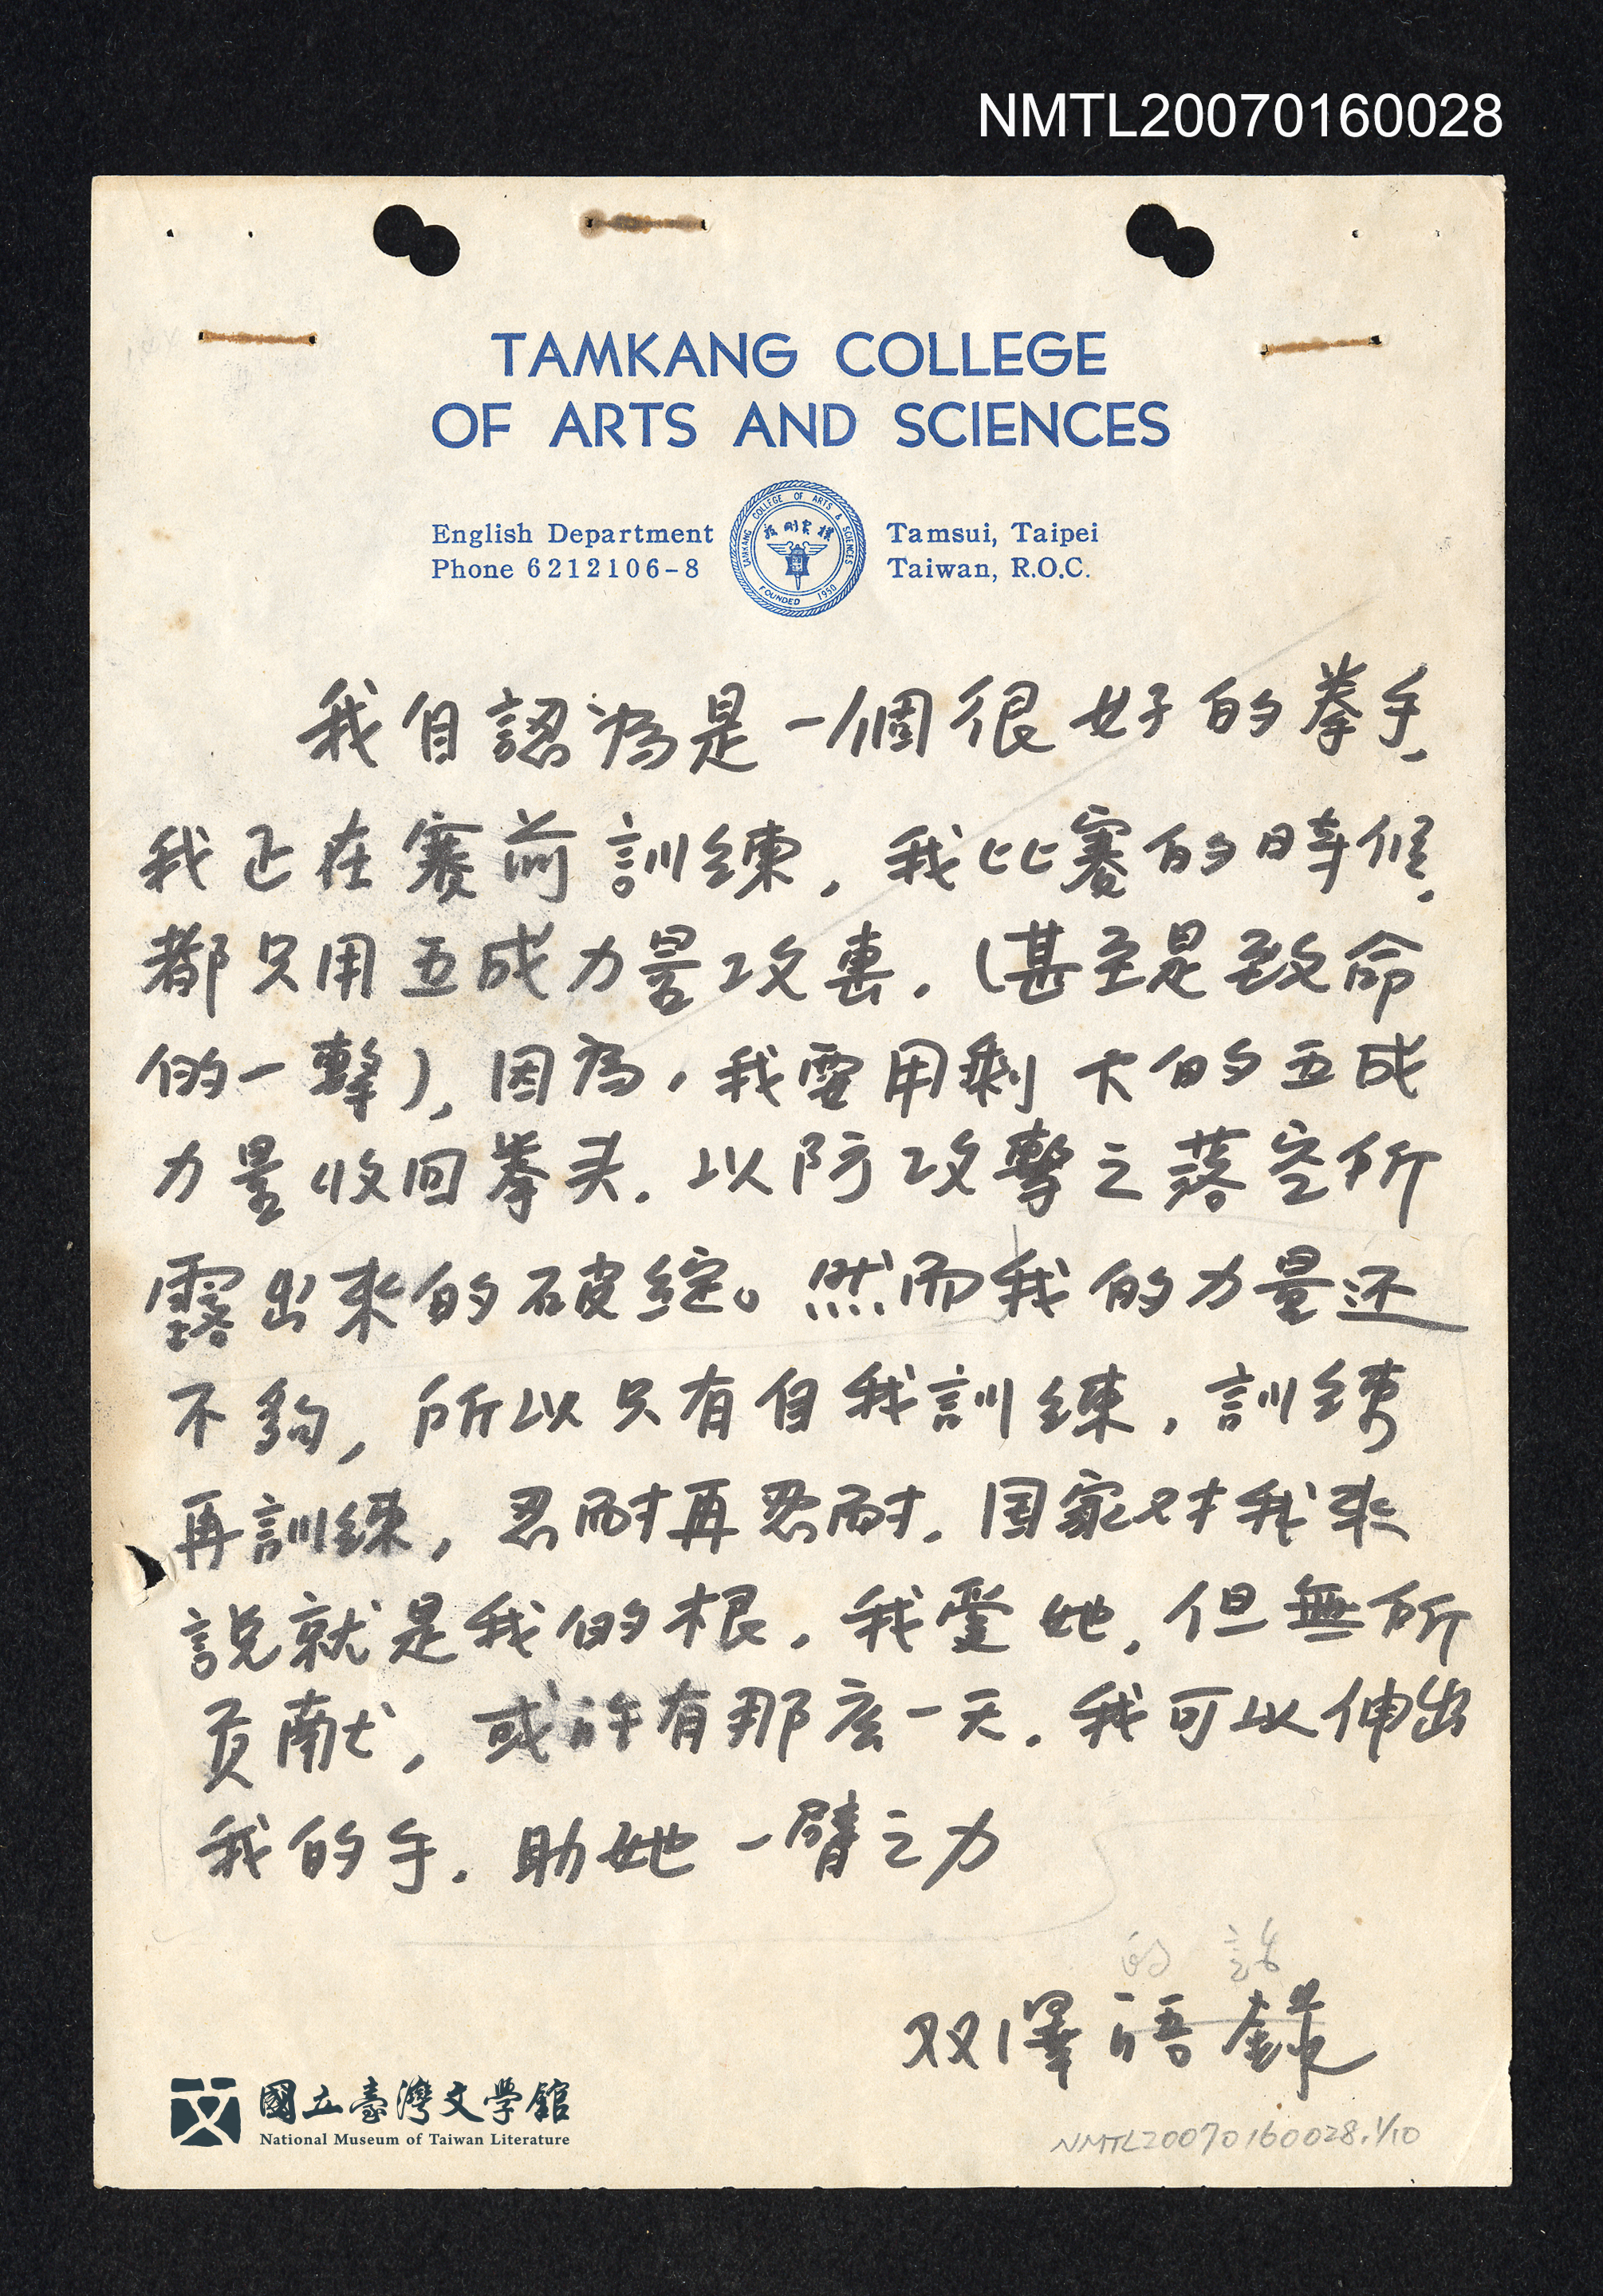 NMTL20070160028
TAMKANG COLLEGE
OF ARTS AND SCIENCES
English Department
Phone 6212106-8
TAMKANG COLLEGE OF ARTS & SCIENCES
FOUNDED 1950
Tamsui, Taipei
Taiwan, R.O.C.
我自認為是一個很好的拳手,
我正在賽前訓練,我比賽的時候,
都只用五成力量攻擊.(甚至是致命
的一擊),因為,我要用剩下的五成
力量收回拳头.以防攻擊之落空所
露出來的破綻。然而我的力量还
不夠,所以只有自我訓練,訓練
再訓練,忍耐再忍耐.国家对我來
說就是我的根.我愛她,但無所
貢献,或許有那么一天.我可以伸出
我的手.助她一臂之力
的話
双澤語錄
國立臺灣文學館
National Museum of Taiwan Literature
NMTL20070160028.1/10